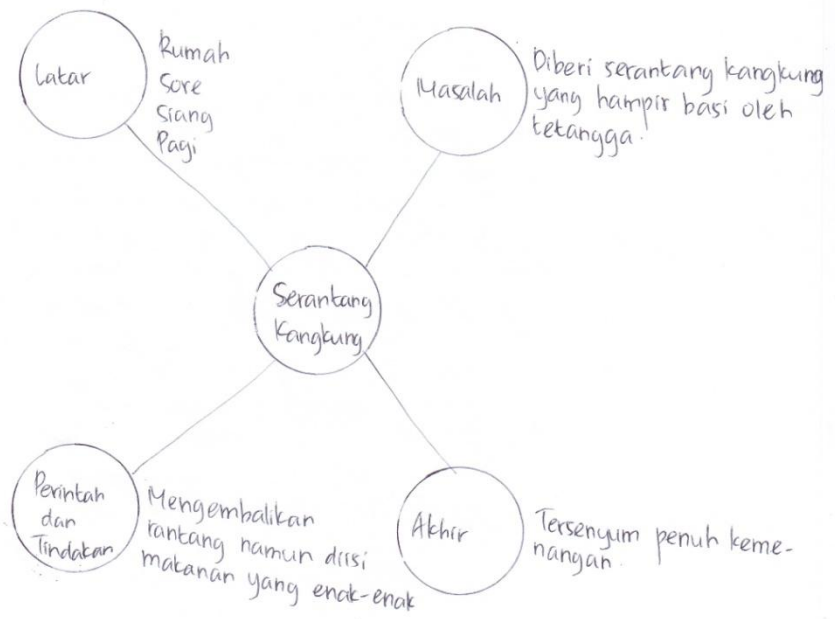 Latar
Rumah
Sore
Siang
Pagi
Masalah
Diberi serantang kangkung
yang hampir basi oleh
tetangga.
Serantang
Kangkung
Perintah
dan
Tindakan
Mengembalikan
rantang namun diisi
makanan yang enak-enak
Akhir
Tersenyum penuh keme-
nangan.